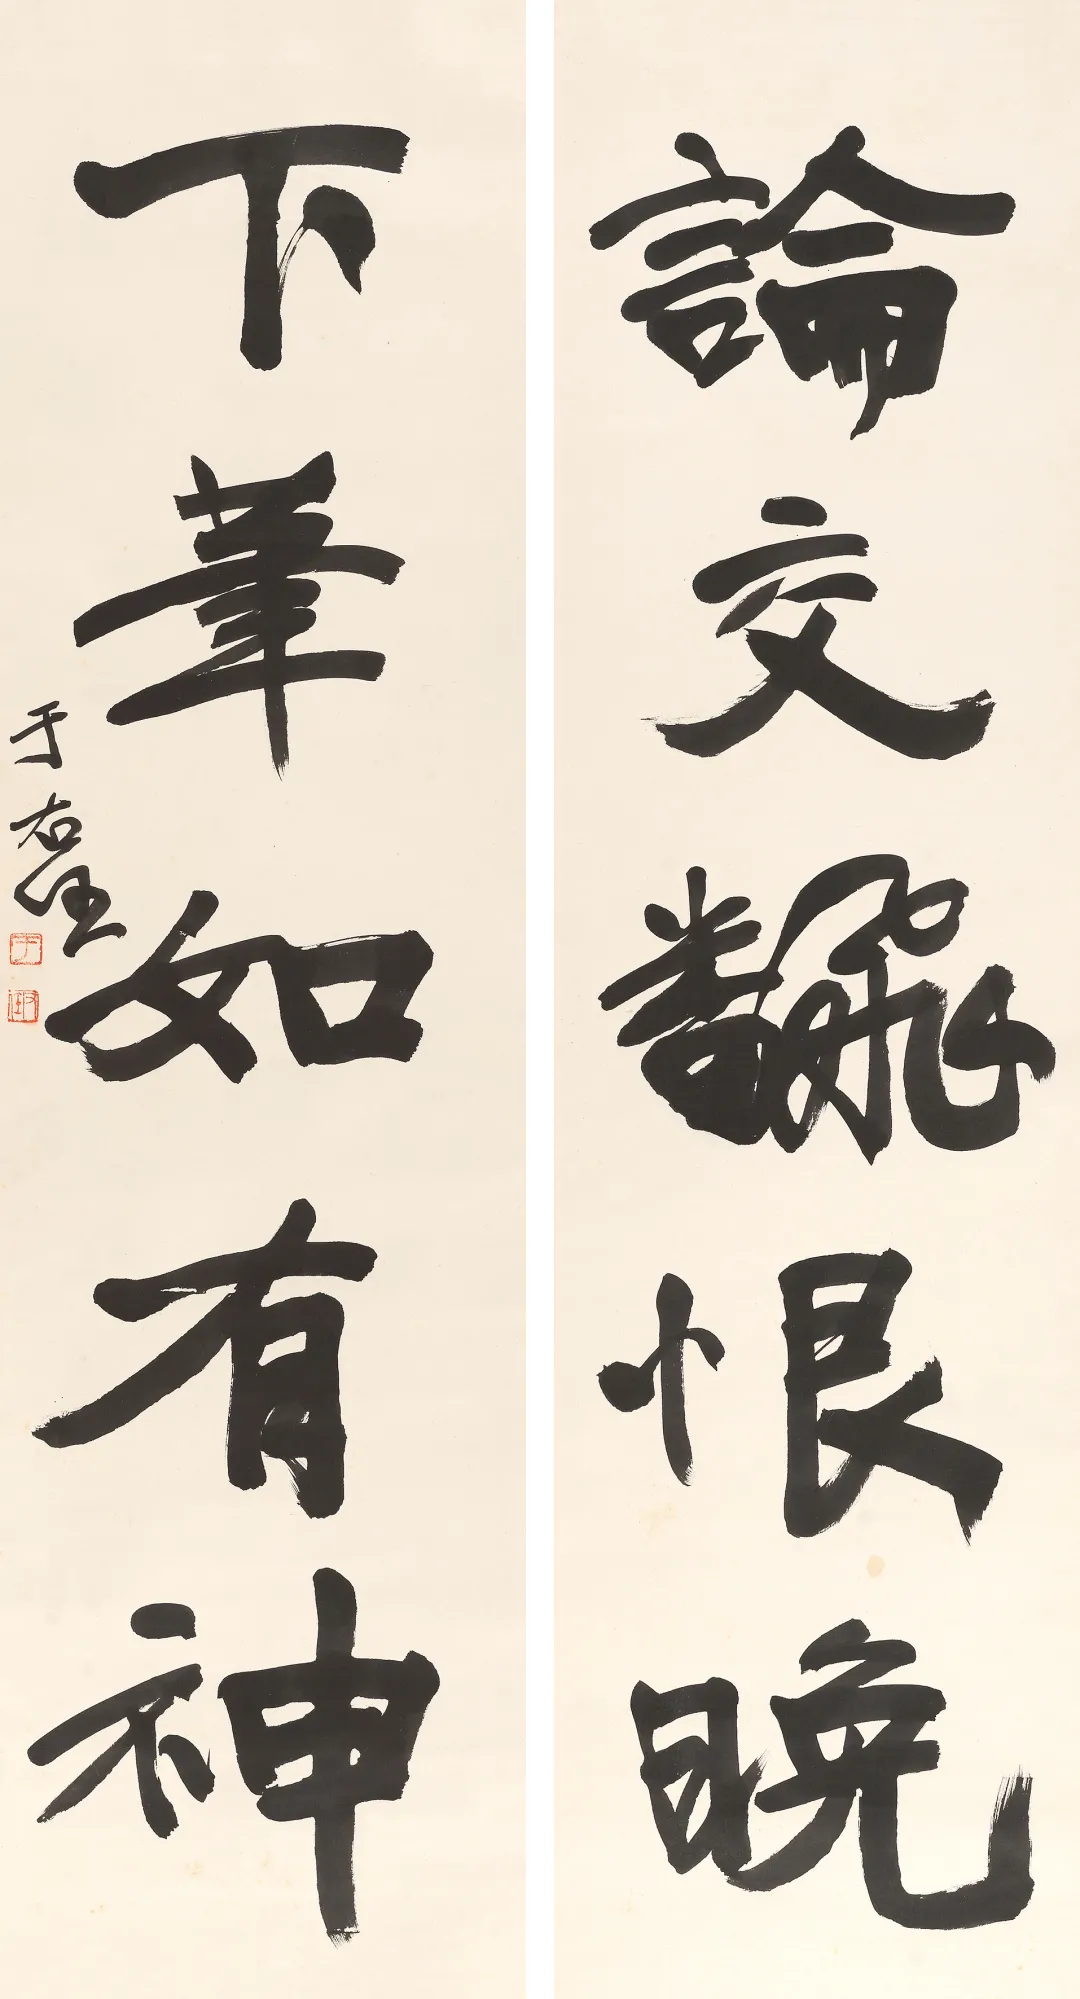 論交飜恨晚
下筆如有神
于右任